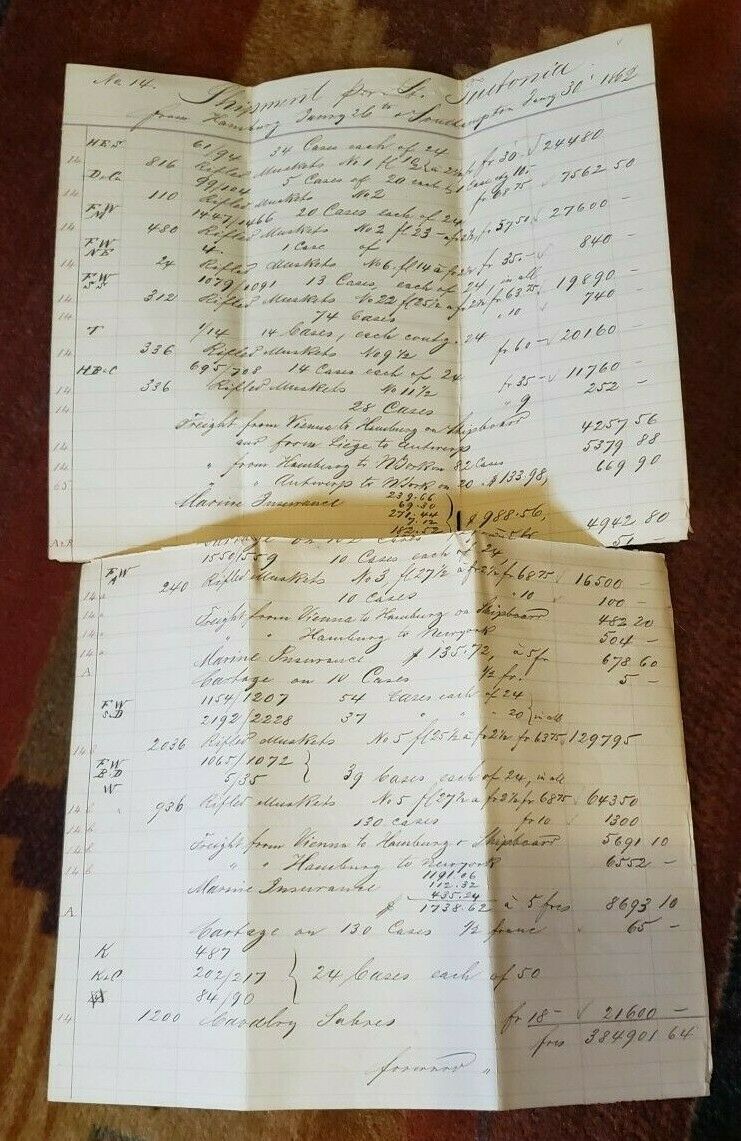 No 14. Shipment pr St. Teutonia
from Hamburg Janry 26th & Southampton Jany 30' 1862
HES 61/94 34 Cases each of 24
14 816 Rifled Muskets No 1 fr 30- 24480
D&Co 99/104 5 Cases of 20 each & 1 Case
110 Rifled Muskets No 2 fr 68 75 7562 50
FW N 1447/1466 20 Cases each of 24
14 480 Rifled Muskets No 2 fl 23 - à fr 2½ fr 57 50 27600 -
FW NE 1 Case of
14 24 Rifled Muskets No 6. fl 14 à fr 2½ fr 35.- 840 -
FW SS 1079/1091 13 Cases, each of 24, in all
14 312 Rifled Muskets No 22 fl 25½ à fr 2½ fr 63 75 19890 -
14 74 Cases " 10 740 -
T 1/14 14 Cases, each contg. 24
14 336 Rifled Muskets No 9½ fr 60- 20160 -
HB&C 695/708 14 Cases each of 24
14 336 Rifled Muskets No 11½ fr 35- 11760 -
14 28 Cases " 9 252 -
14 Freight from Vienna to Hamburg on Shipboard 4257 56
14 and from Liége to Antwerp 5379 88
14 " from Hamburg to NYork on 82 Cases 669 90
65 " " Antwerp to NYork on 20 - $133.98,
Marine Insurance 239.66
69.30
271.44
7.12
182.52
$988.56, 4942 80
A&R 51 -
FW A 1550/559 10 Cases each of 24
14a 240 Rifled Muskets No 3 fl 27½ à fr 2½ fr 68 75 16500 -
14a 10 Cases " 10 100 -
14a Freight from Vienna to Hamburg on Shipboard 482 20
14a " " Hamburg to Newyork 504 -
14a Marine Insurance $ 135.72, à 5 fr 678 60
A Cartage on 10 Cases ½ fr. 5 -
FW S.D 1154/1207 54 Cases each of 24
2192/2228 37 " " - 20 } in all
14b 2036 Rifled Muskets No 5 fl 25½ à fr 2½ fr 63 75 129795
FW B.D 1065/1072
W 5/35 } 39 Cases each of 24, in all
14b 936 Rifled Muskets No 5 fl 27½ à fr 2½ fr 68 75 64350
14b 130 Cases fr 10 1300
14b Freight from Vienna to Hamburg & Shipboard 5691 10
14b " " Hamburg to Newyork 6552 -
Marine Insurance 1191.06
112.32
435.24
A $ 1738.62 à 5 frcs 8693 10
Cartage on 130 Cases ½ franc 65 -
K 487
K&C 202/217 } 24 Cases each of 50
84/90
14 1200 Cavalry Sabres fr 18- 21600 -
frcs 384901 64
forward "